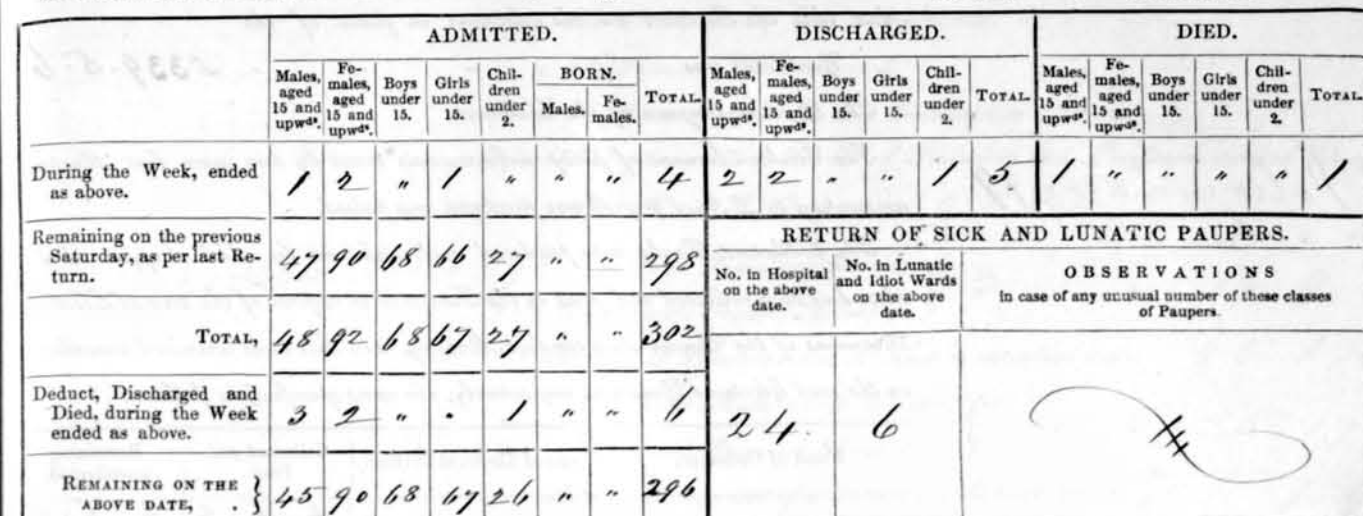 ADMITTED. DISCHARGED. DIED.
Males, aged 15 and upwds. Females, aged 15 and upwds. Boys under 15. Girls under 15. Children under 2. BORN. Males. Females. TOTAL. Males, aged 15 and upwds. Females, aged 15 and upwds. Boys under 15. Girls under 15. Children under 2. TOTAL. Males, aged 15 and upwds. Females, aged 15 and upwds. Boys under 15. Girls under 15. Children under 2. TOTAL.
During the Week, ended
as above. 1 2 " 1 " " " 4 2 2 " " 1 5 1 " " " " 1
Remaining on the previous
Saturday, as per last Re-
turn. 47 90 68 66 27 " " 298
TOTAL, 48 92 68 67 27 " " 302
Deduct, Discharged and
Died, during the Week
ended as above. 3 2 " " 1 " " 6
REMAINING ON THE
ABOVE DATE, . 45 90 68 67 26 " " 296
RETURN OF SICK AND LUNATIC PAUPERS.
No. in Hospital
on the above
date.
24
No. in Lunatic
and Idiot Wards
on the above
date.
6
OBSERVATIONS
in case of any unusual number of these classes
of Paupers.